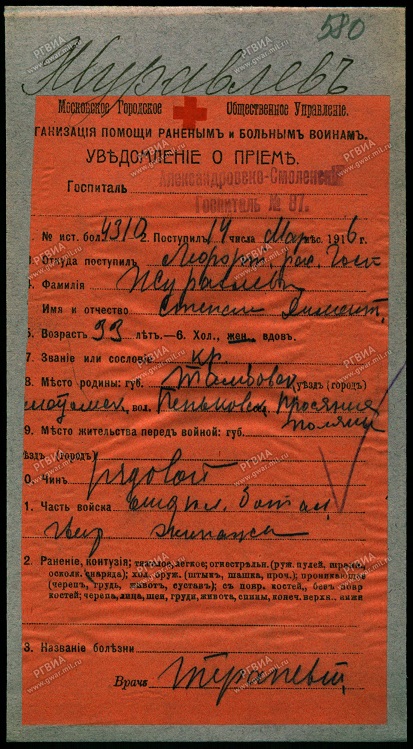 580
Журавлевъ
Московское Городское Общественное Управленіе.
ГАНИЗАЦІЯ ПОМОЩИ РАНЕНЫМЪ И БОЛЬНЫМЪ ВОИНАМЪ.
УВѢДОМЛЕНІЕ О ПРІЕМѢ.
Госпиталь Александровско-Смоленск
Госпиталь № 87.
№ ист. бол. 4310 2. Поступилъ 14 числа Мар мѣс. 1916 г.
Откуда поступилъ
4. Фамилія Журавлевъ
Имя и отчество Степанъ
5. Возрастъ 33 лѣтъ.—6. Хол., жен. вдов.
7. Званіе или сословіе кр.
8. Мѣсто родины: губ. Тамбовск, уѣздъ (городъ)
вол. Пеньковск,
Поляны
9. Мѣсто жительства передъ войной: губ.
ѣздъ (городъ)
0. Чинъ рядовой
1. Часть войска
2. Раненіе, контузія; тяжелое, легкое; огнестрѣльн. (руж. пулей, шрапн.,
осколк. снаряда); хол. оруж. (штыкъ, шашка, проч.); проникающая
(черепъ, грудь, животъ, суставъ); съ повр. костей, безъ повр
костей; черепа, лица, шеи, груди, живота, спины, конеч. верхн., нижн
3. Названіе болѣзни
Врачъ
РГВИА
www.gwar.mil.ru